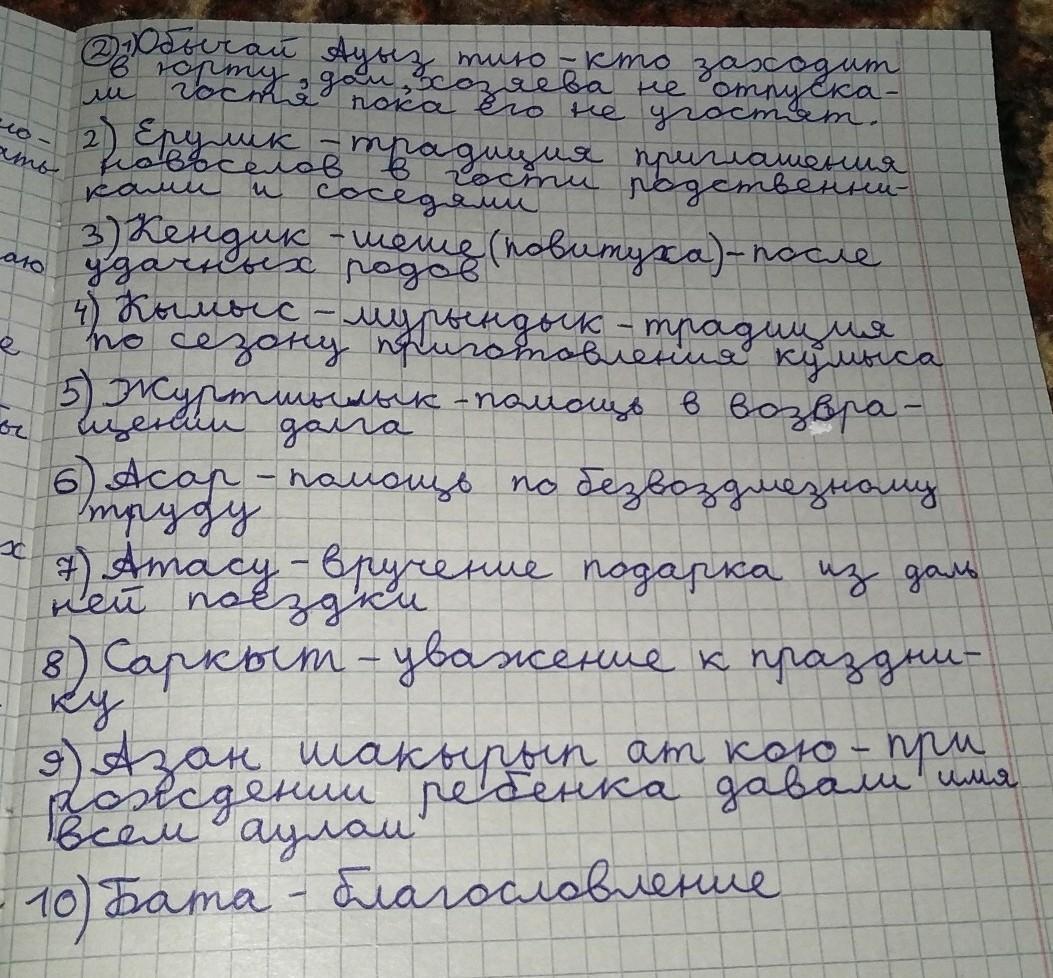 ② 1) Обычай Ауыз тию - кто заходит
в юрту, дом, хозяева не отпуска-
ли гостя пока его не угостят.
2) Ерулик - традиция приглашения
новоселов в гости родственни-
ками и соседями
3) Кендик - шеше (повитуха) - после
удачных родов
4) Кымыс - мурындык - традиция
по сезону приготовления кумыса
5) Журтшылык - помощь в возвра-
щении долга
6) Асар - помощь по безвоздмезному
труду
7) Атасу - вручение подарка из даль
ней поездки
8) Саркыт - уважение к праздни-
ку
9) Азан шакырып ат кою - при
рождении ребенка давали имя
всем аулом
10) Бата - благословление